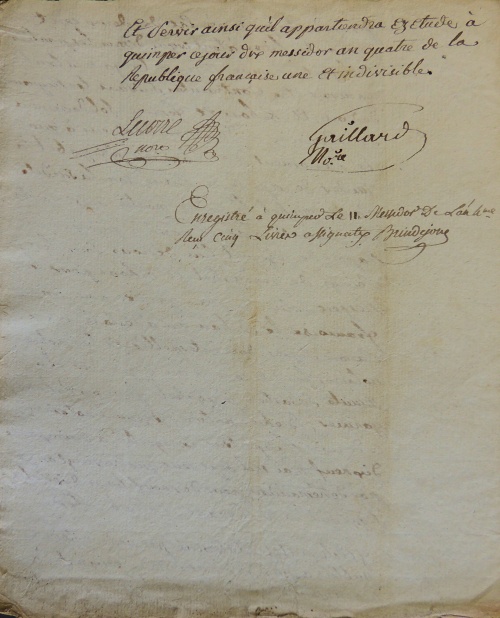 Et Servir ainsi qu'il appartiendra Ez Etude à
quimper ce jour dix messidor an quatre de la
Republique française une et indivisible.
Gaillard
No.re
nore
Enregistré à quimper Le 11. Messidor De L'an 4me
Reçu Cinq Livres assignats